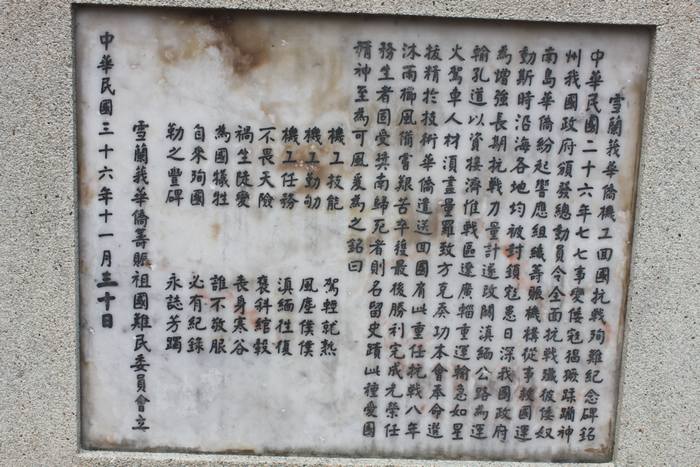 雪蘭莪華僑機工回國抗戰殉難紀念碑銘
中華民國二十六年七七事變倭寇猖獗蹂躪神
州我國政府頒發總動員令全面抗戰殲彼倭奴
南島華僑紛起響應組織籌賑機構從事救國運
動斯時沿海各地均被封鎖寇患日深我國政府
為增強長期抗戰力量計遂改闢滇緬公路為運
輸孔道以資接濟惟戰區遼廣輜重運輸急如星
火駕車人材須盡量羅致方克奏功本會奉命選
拔精於技術華僑遣送回國肩此重任抗戰八年
沐雨櫛風備嘗艱苦卒獲最後勝利完成光榮任
務生者固愛獎南歸死者則名留史蹟此種愛國
精神至為可風爰為之銘曰
機工技能 駕輕就熟
機工勤劬 風塵僕僕
機工任務 滇緬往復
不畏天險
禍生陡變 喪身寒谷
為國犧牲 誰不敬服
自來殉國 必有紀錄
勒之豐碑 永誌芳躅
雪蘭莪華僑籌賑祖國難民委員會立
中華民國三十六年十一月三十日